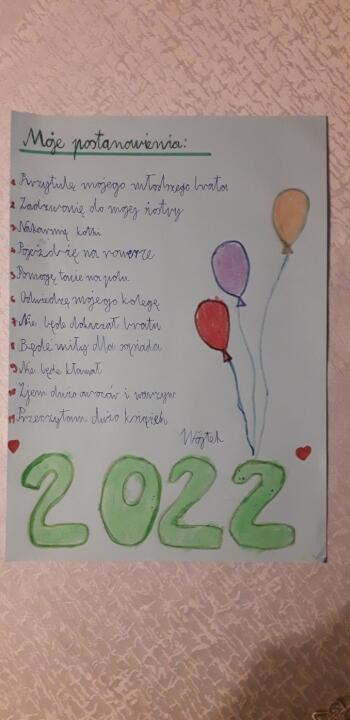 Moje postanowienia:
1. Przytulę mojego młodszego brata
2. Zadzwonię do mojej siostry
3. Nakarmię kotki
4. Pojeżdżę na rowerze
5. Pomogę tacie na polu
6. Odwiedzę mojego kolegę
7. Nie będę dokuczał bratu
8. Będę miły dla sąsiada
9. Nie będę kłamał
10. Zjem dużo owoców i warzyw
11. Przeczytam dużo książek
Wojtek
2022